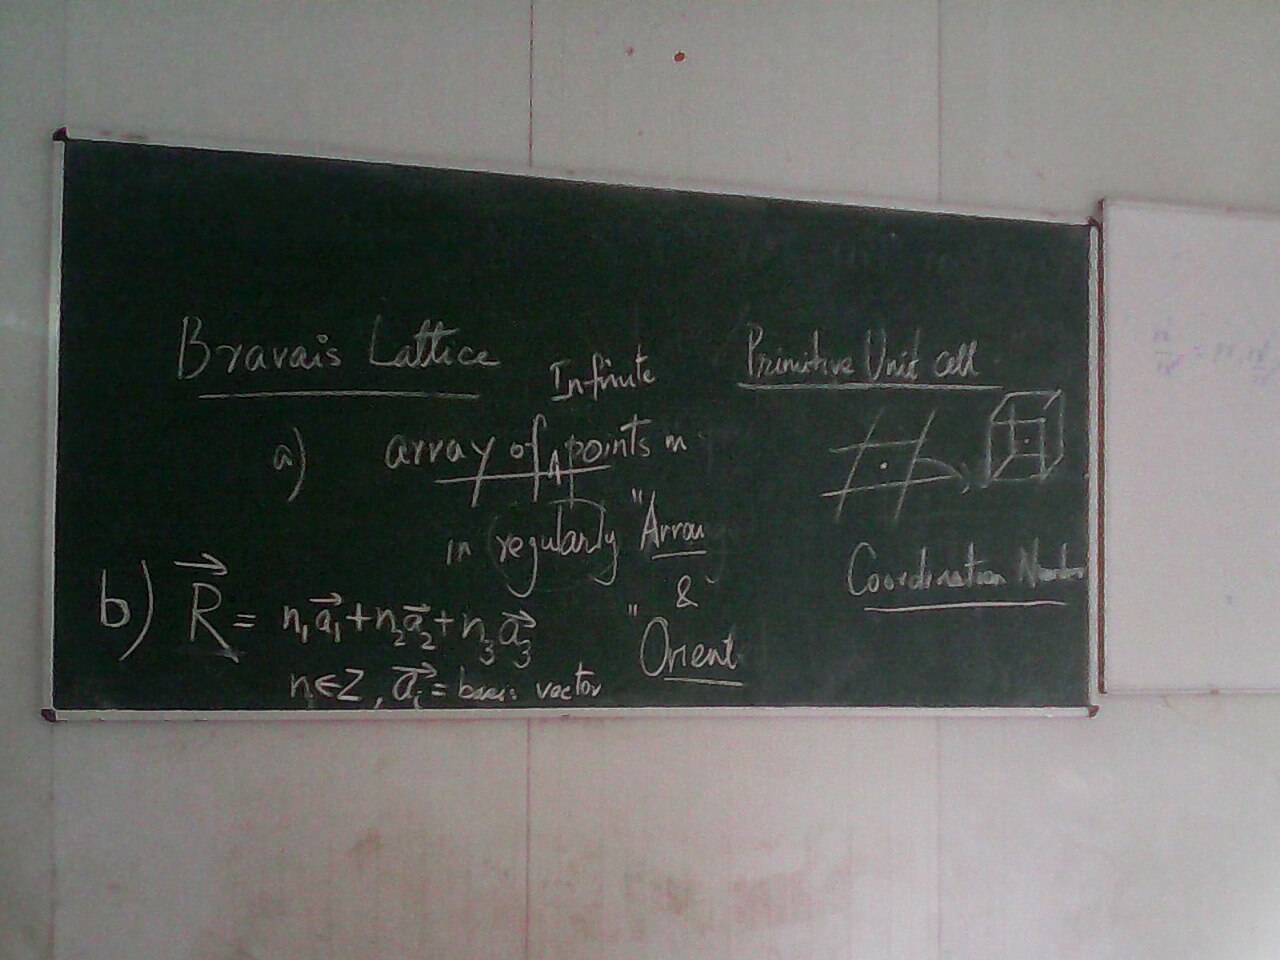 Bravais Lattice
Infinite
a) array of points in
in regularly "Array
&
"Orient
b) R⃗ = n₁a⃗₁ + n₂a⃗₂ + n₃a⃗₃
n∈Z, a⃗ᵢ = basis vector
Primitive Unit cell
Coordination Number